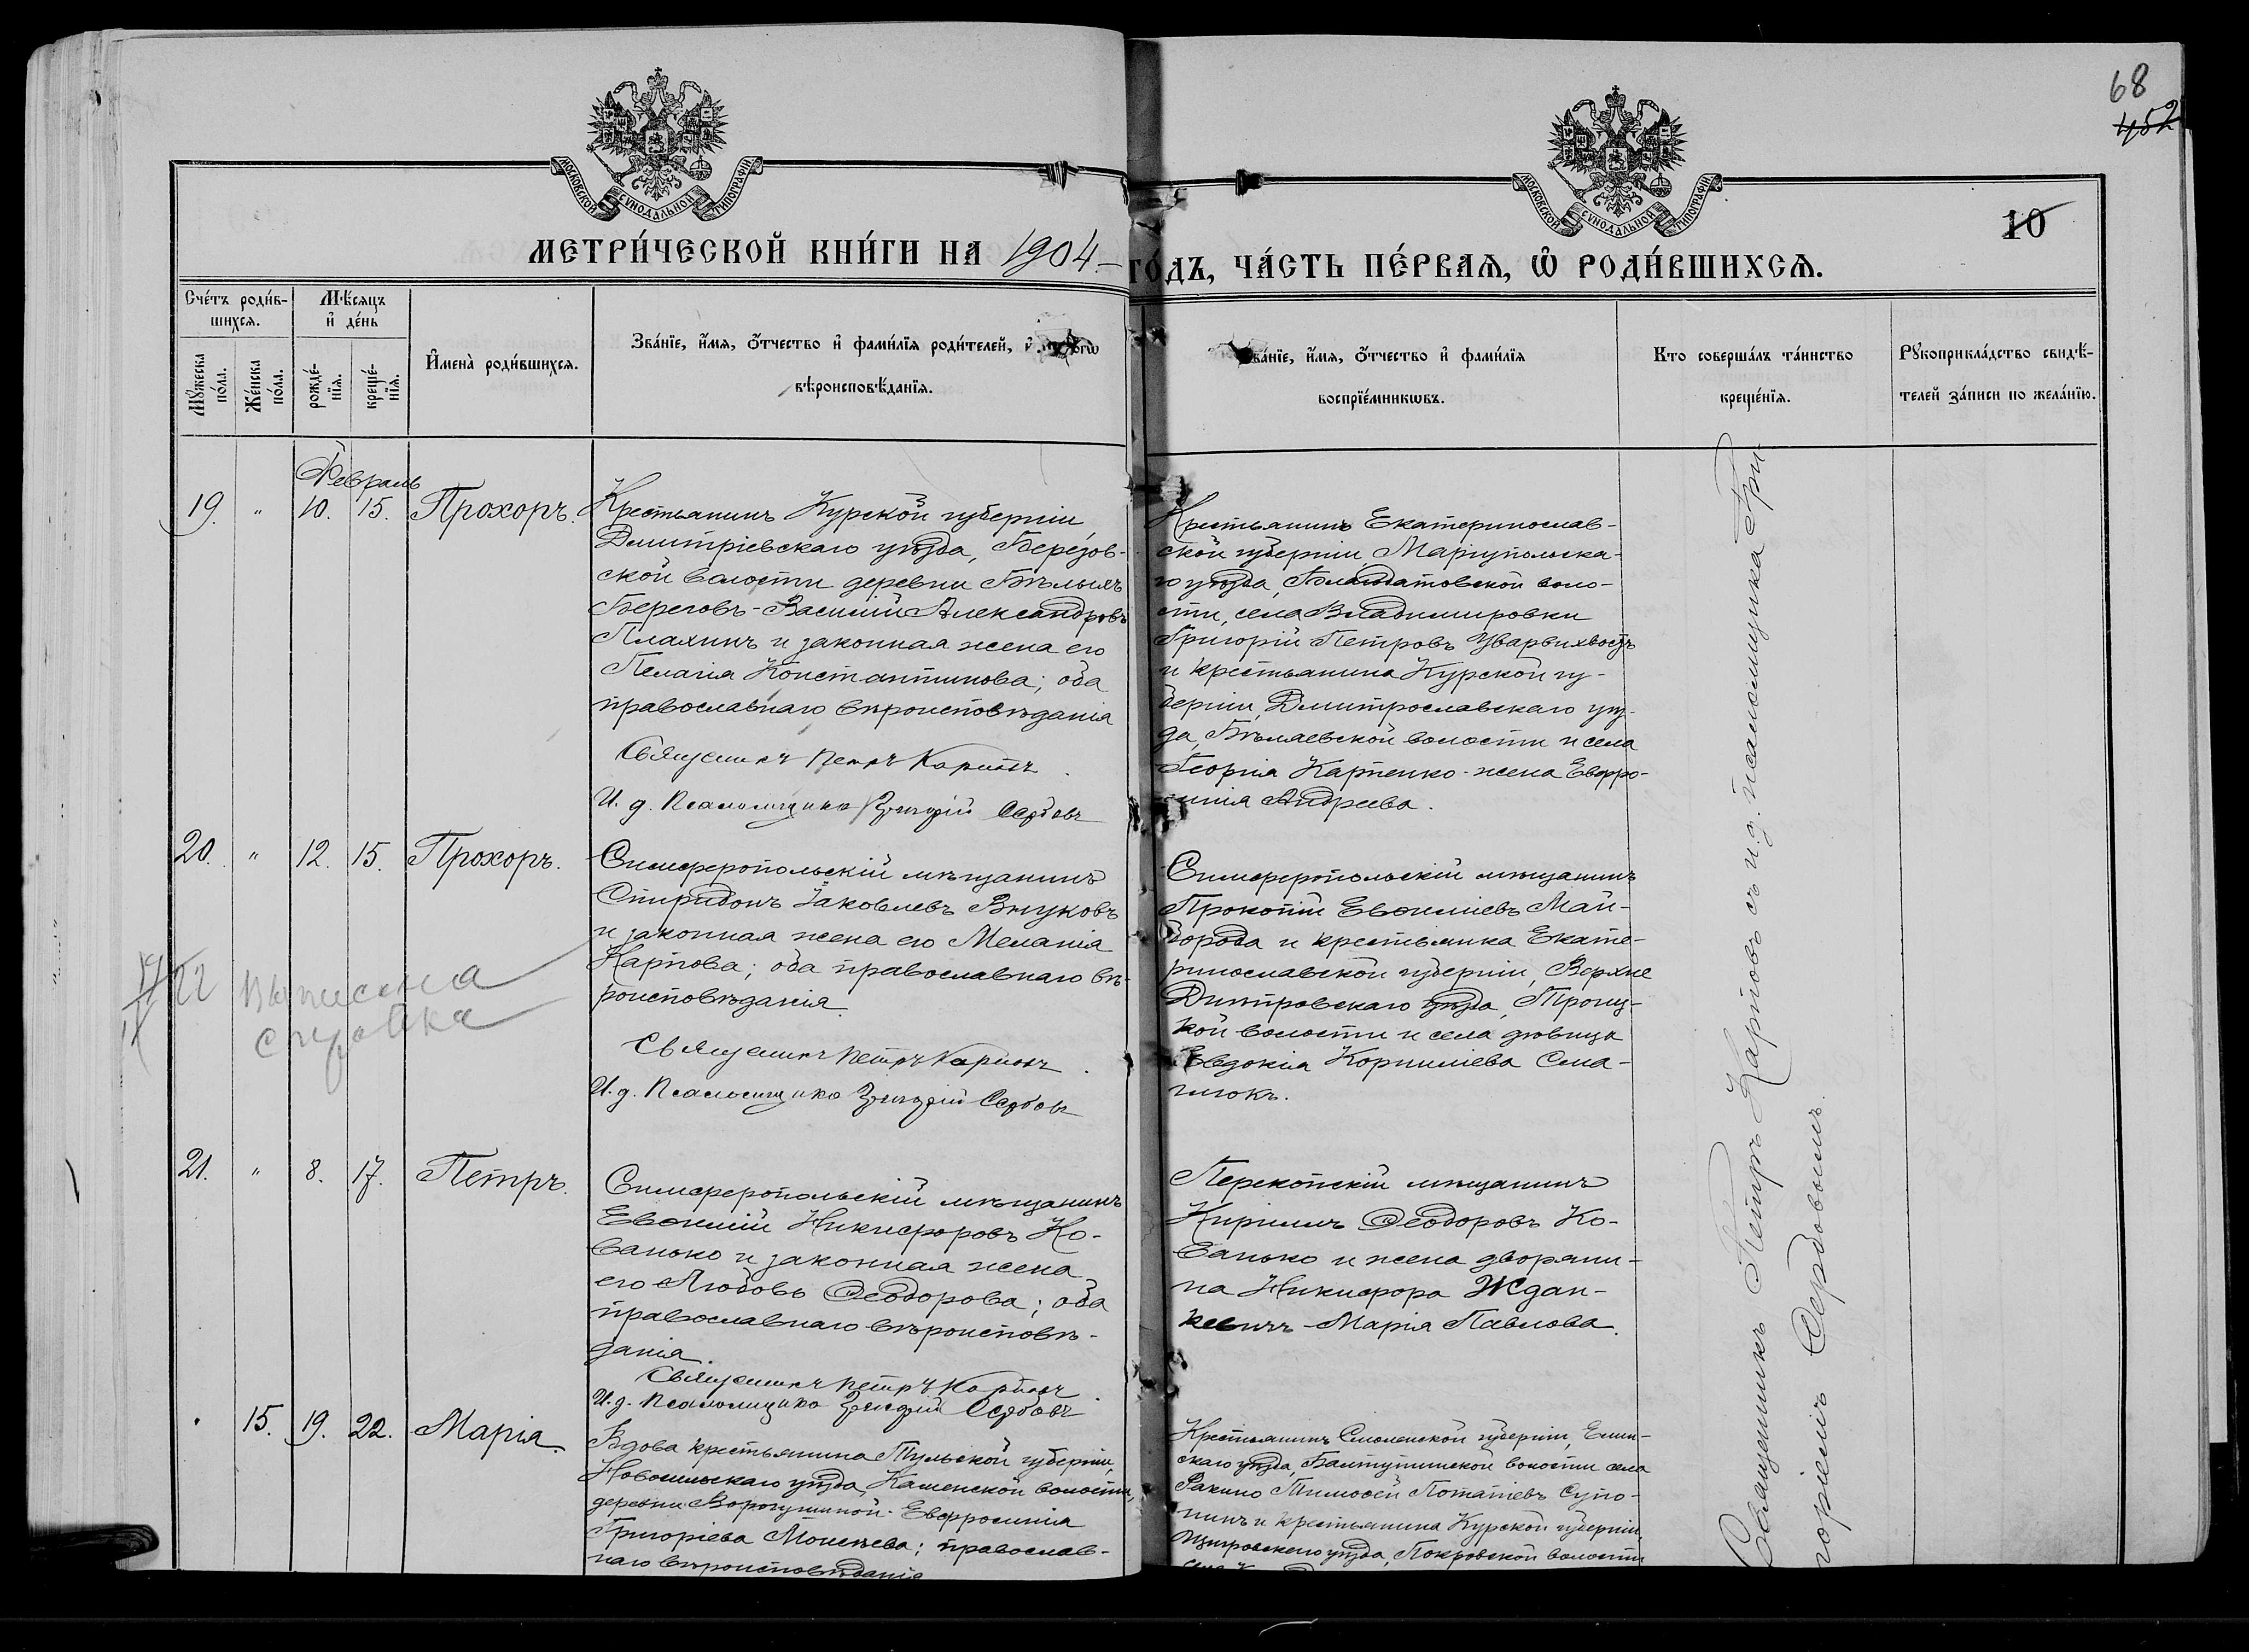 68
452
МОСКОВСКОЙ СѴНОДАЛЬНОЙ ТИПОГРАФІИ
МОСКОВСКОЙ СѴНОДАЛЬНОЙ ТИПОГРАФІИ
10
МЕТРИ́ЧЕСКОЙ КНИ́ГИ НА 1904.–
ГО́ДЪ, ЧА́СТЬ ПЕ́РВАѦ, Ѽ РОДИ́ВШИХСѦ.
Сче́тъ роди́в-
шихсѧ.
Мꙋ́жеска по́ла.
Же́нска по́ла.
Мѣ́сѧцъ
и҆ де́нь
рожде́-
нїѧ.
креще́-
нїѧ.
И҆мена̀ роди́вшихсѧ.
Зва́нїе, и҆́мѧ, ѻ҆́тчество и҆ фами́лїѧ роди́телей, и҆
вѣроисповѣ́данїѧ.
и҆́мѧ, ѻ҆́тчество и҆ фами́лїѧ
воспрїе́мникѡвъ.
Кто соверша́лъ та́инство
креще́нїѧ.
Рꙋкоприкла́дство свидѣ́-
телей за́писи по жела́нїю.
Февраль
19. " 10. 15. Прохоръ.
Крестьянинъ Курской губерніи
Дмитріевскаго уѣзда, Березов-
ской волости деревни Бѣлыхъ
Береговъ - Василій Александровъ
Плахинъ и законная жена его
Пелагія Константинова; оба
православнаго вѣроисповѣданія
Священникъ Петръ Карповъ.
И. д. Псаломщика Григорій Сердовъ
Крестьянинъ Екатеринослав-
ской губерніи, Маріупольска-
го уѣзда, Благодатовской воло-
сти, села Владимировки
Григорій Петровъ
и крестьянина Курской гу-
берніи, Дмитрославскаго уѣз-
да, Бѣляевской волости и села
Георгія Карпенко - жена Евфро-
синія Андреева.
20. " 12. 15. Прохоръ.
Симферопольскій мѣщанинъ
Спиридонъ Іаковлевъ Внуковъ
и законная жена его Меланія
Карпова; оба православнаго вѣ-
роисповѣданія
Священникъ Петръ Карповъ.
И. д. Псаломщика Григорій Сердовъ
Симферопольскій мѣщанинъ
Прокопій Евѳиміевъ Май-
борода и крестьянка Екате-
ринославской губерніи, Верхне
Днѣпровскаго уѣзда, Троиц-
кой волости и села дѣвица
Евдокія Корниліева Сма-
глюкъ.
22 Выписана
справка
21. " 8. 17. Петръ.
Симферопольскій мѣщанинъ
Евѳимій Никифоровъ Ко-
ванько и законная жена
его Любовь Ѳеодорова; оба
православнаго вѣроисповѣ-
данія.
Священникъ Петръ Карповъ.
И. д. Псаломщика Григорій Сердовъ
Перекопскій мѣщанинъ
Кириллъ Ѳеодоровъ Ко-
ванько и жена дворяни-
на Никифора Ждан-
кевичъ - Марія Павлова.
" 15. 19. 22. Марія.
Вдова крестьянина Тульской губерніи,
Новосильскаго уѣзда, Каменской волости,
деревни Ворогушиной - Евфросинія
Григоріева Моисеева; православ-
наго вѣроисповѣданія
Крестьянинъ Смоленской губерніи,
скаго уѣзда, волости села
Ракино Тимоѳей Потапіевъ Супо-
нинъ и крестьянина Курской губерніи,
Щигровскаго уѣзда, Покровской волости
Священникъ Петръ Карповъ съ и. д. псаломщика Гри-
горіемъ Сердовымъ.